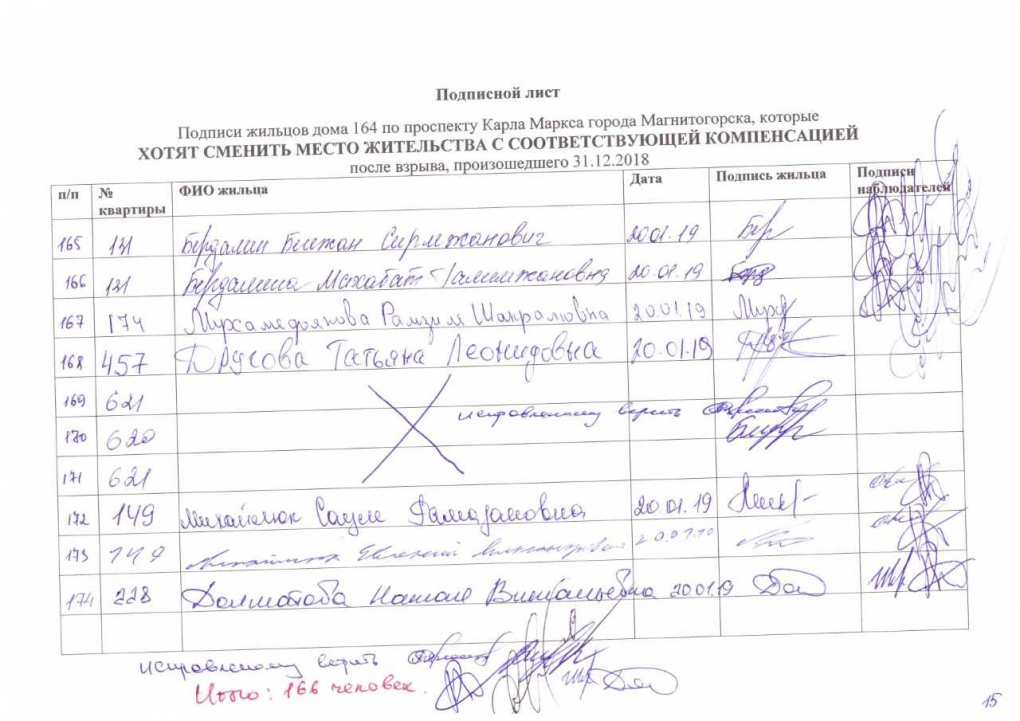 Подписной лист
Подписи жильцов дома 164 по проспекту Карла Маркса города Магнитогорска, которые
ХОТЯТ СМЕНИТЬ МЕСТО ЖИТЕЛЬСТВА С СООТВЕТСТВУЮЩЕЙ КОМПЕНСАЦИЕЙ
после взрыва, произошедшего 31.12.2018
п/п № квартиры ФИО жильца Дата Подпись жильца Подписи наблюдателей
165 131 Бердалин Сирмжанович 20.01.19 Бер
166 131 Бердалина Махабат 20.01.19
167 174 Мухамедьянова Рамзия 20.01.19 Мухд
168 457 Друсова Татьяна Леонидовна 20.01.19
169 621
исправленному верить
170 620
171 621
172 149 Михайлюк Сауле Рамазановна 20.01.19
173 149 Евгений
174 228 Долматова Витальевна 20.01.19 Дол
исправленному верить
Итого: 166 человек.
15